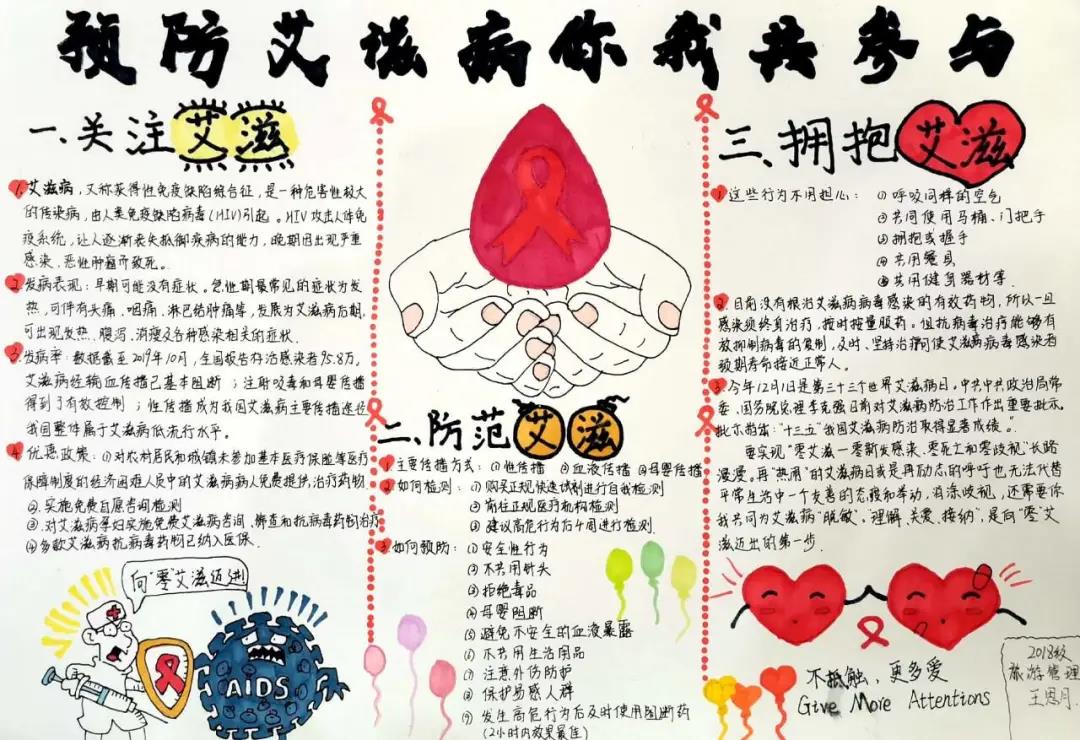 预防艾滋病你我共参与
一、关注艾滋
1. 艾滋病,又称获得性免疫缺陷综合征,是一种危害性极大
的传染病,由人类免疫缺陷病毒(HIV)引起。HIV攻击人体免
疫系统,让人逐渐丧失抵御疾病的能力,晚期因出现严重
感染、恶性肿瘤而致死。
2. 发病表现:早期可能没有症状。急性期最常见的症状为发
热,可伴有头痛、咽痛、淋巴结肿痛等,发展为艾滋病后期,
可出现发热、腹泻、消瘦及各种感染相关的症状.
3. 发病率:数据截至2019年10月,全国报告存活感染者95.8万,
艾滋病经输血传播已基本阻断;注射吸毒和母婴传播
得到了有效控制;性传播成为我国艾滋病主要传播途径
我国整体属于艾滋病低流行水平。
4. 优惠政策:①对农村居民和城镇未参加基本医疗保险等医疗
保障制度的经济困难人员中的艾滋病病人免费提供治疗药物
②实施免费自愿咨询检测
③对艾滋病孕妇实施免费艾滋病咨询、筛查和抗病毒药物治疗
④多款艾滋病抗病毒药物已纳入医保.
向“零”艾滋迈进!
AIDS
二、防范艾滋
1. 主要传播方式:①性传播 ②血液传播 ③母婴传播
2. 如何检测:①购买正规快速试剂进行自我检测
②前往正规医疗机构检测
③建议高危行为后4周进行检测
3. 如何预防:①安全性行为
②不共用针头
③拒绝毒品
④母婴阻断
⑤避免不安全的血液暴露
⑥不共用生活用品
⑦注意外伤防护
⑧保护易感人群
⑨发生高危行为后及时使用阻断药
(2小时内效果最佳)
三、拥抱艾滋
1 这些行为不用担心:①呼吸同样的空气
②共同使用马桶、门把手
③拥抱或握手
④共用餐具
⑤共用健身器材等.
2. 目前没有根治艾滋病病毒感染的有效药物,所以一旦
感染须终身治疗,按时按量服药。但抗病毒治疗能够有
效抑制病毒的复制,及时、坚持治疗可使艾滋病病毒感染者
预期寿命接近正常人。
3. 今年12月1日是第三十三个世界艾滋病日。中共中共政治局常
委、国务院总理李克强日前对艾滋病防治工作作出重要批示。
批示指出:“十三五”我国艾滋病防治取得显著成绩。”
要实现“零艾滋—零新发感染、零死亡和零歧视”长路
漫漫。再“热闹”的艾滋病日或是再励志的呼吁也无法代替
平常生活中一个友善的态度和举动,消除歧视,还需要你
我共同为艾滋病“脱敏”。理解、关爱、接纳”,是向“零”艾
滋迈出的第一步.
不抵触、更多爱
Give More Attentions
2018级
旅游管理
王恩月.